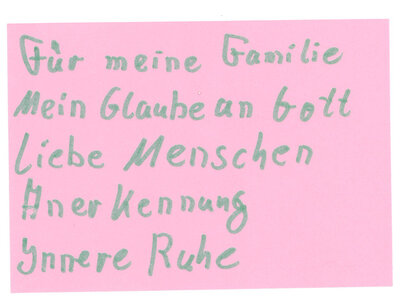 Für meine Familie
Mein Glaube an Gott
Liebe Menschen
Anerkennung
Innere Ruhe